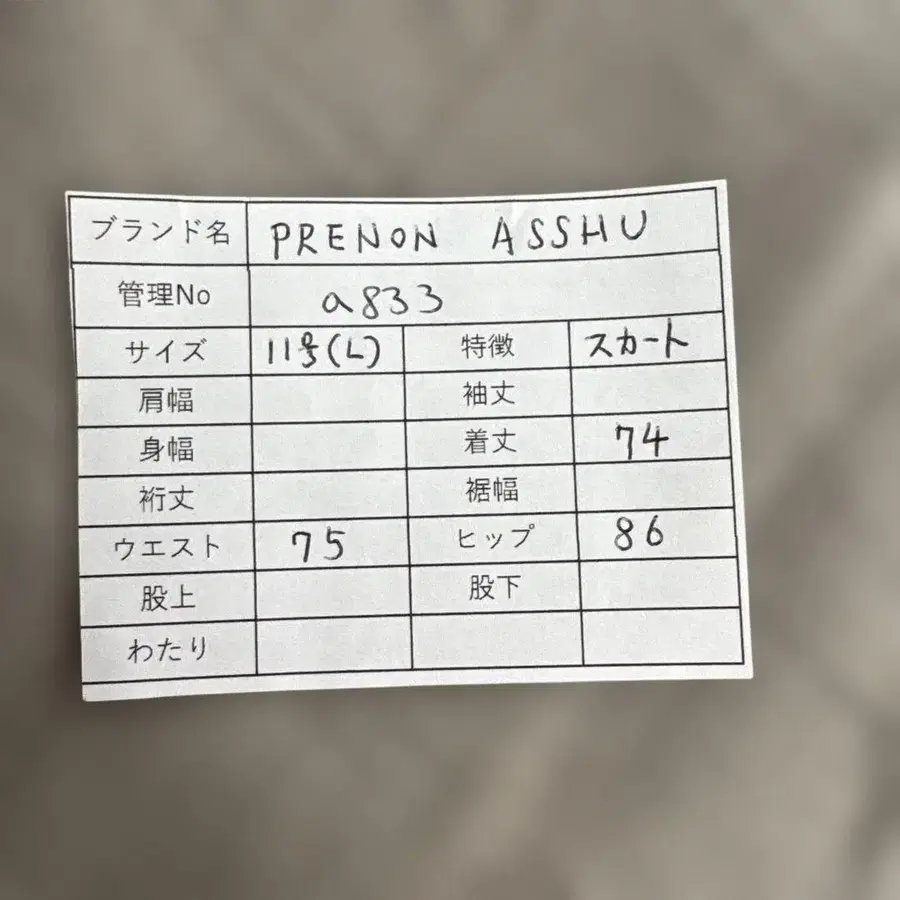 ブランド名 PRENON ASSHU
管理No a833
サイズ 11号(L) 特徴 スカート
肩幅 袖丈
身幅 着丈 74
裄丈 裾幅
ウエスト 75 ヒップ 86
股上 股下
わたり